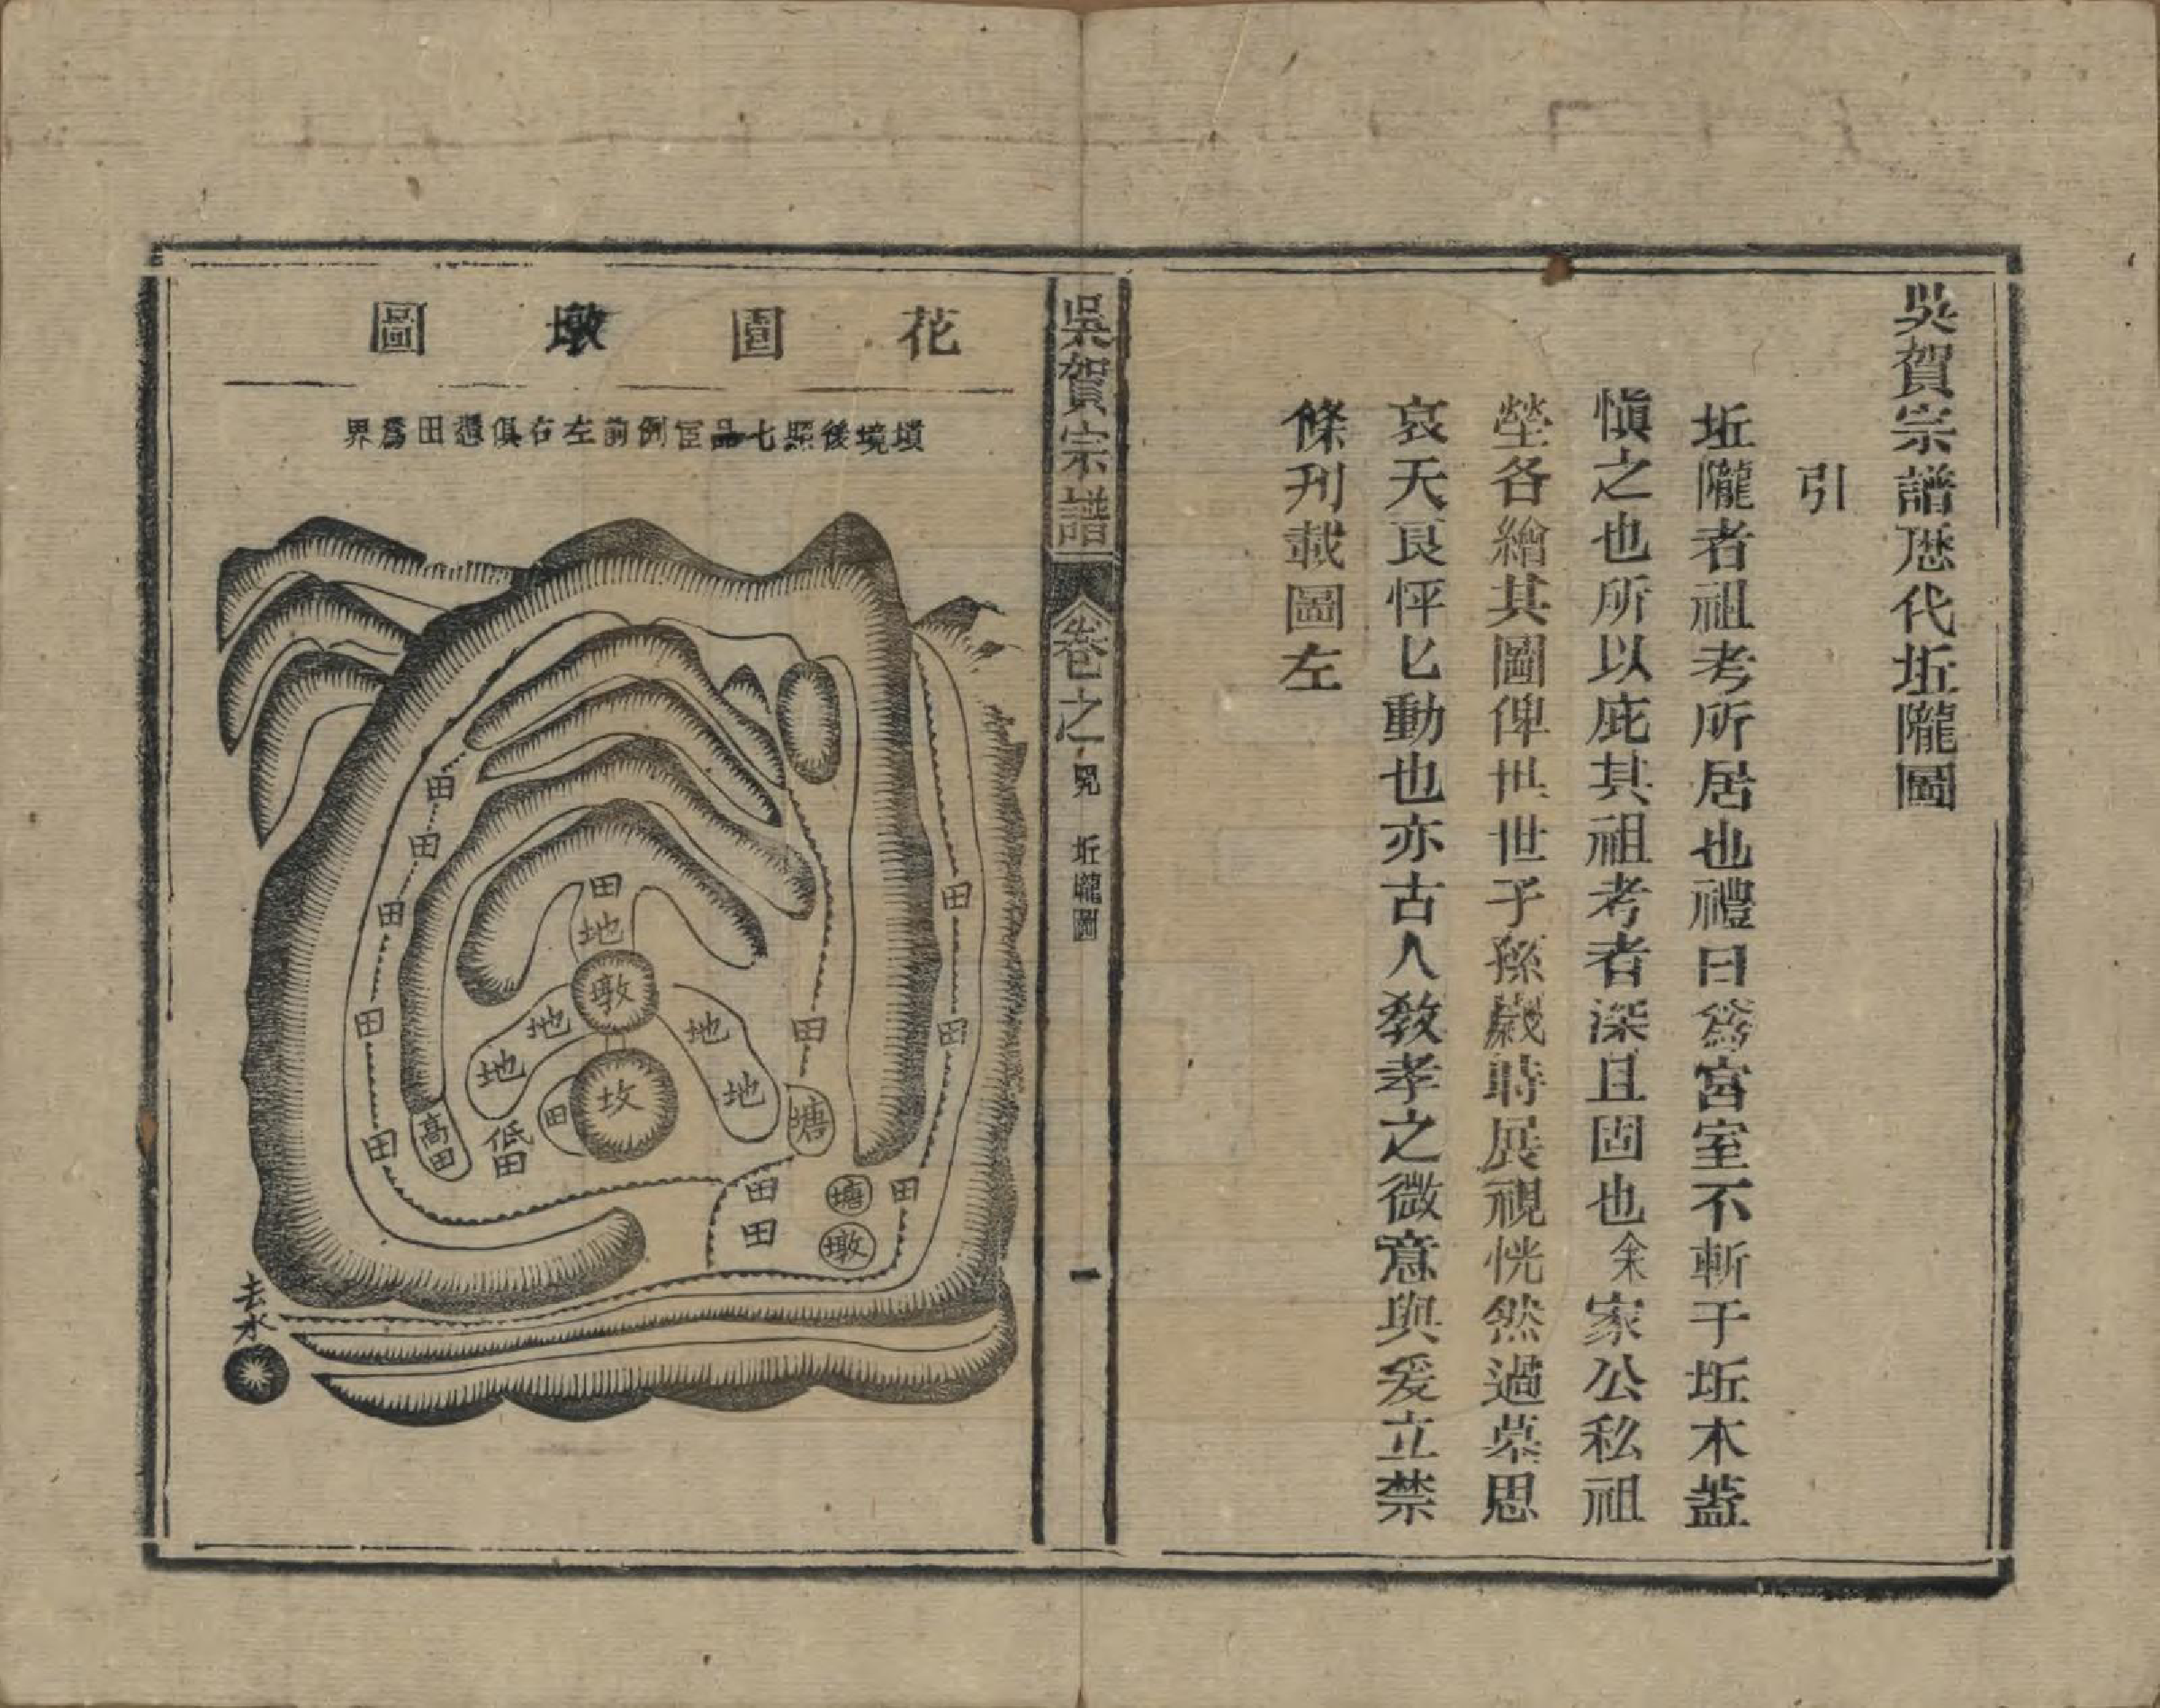 吳賀宗譜歴代坵隴圖
引
坵隴者祖考所居也禮曰爲宮室不斬于坵木葢
愼之也所以庇其祖考者深且固也余家公私祖
塋各繪其圖俾世世子孫歲時展視恍然過墓思
哀天良怦匕動也亦古人敎孝之微意與爰立禁
條刋載圖左
吳賀宗譜 卷之 坵隴圖 一
花園墩圖
墳境後照七品官例前左右俱憑田爲界
田
田
田
田
田
高田
低田
田
地
墩
地
地
地
地
坟
田
田
塘
田
田
田
田
田
塘
墩
去水